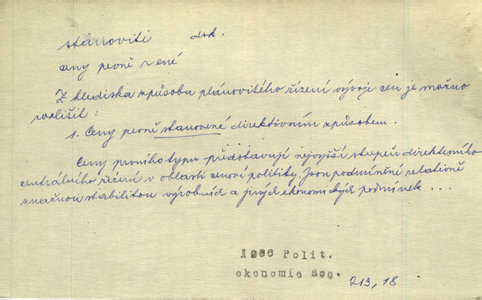 stanoviti dok.
ceny pevně z ené
Z hlediska způsobu plánovitého řízení vývoje cen je možno
rozlišit:
1. Ceny pevně stanovené direktivním způsobem.
Ceny prvního typu představují nejvyšší stupeň direktivního
centrálního řízení v oblasti cenové politiky. Jsou podmíněné relativně
značnou stabilitou výrobních a jiných ekonomických podmínek ...
1966 Polit.
ekonomie soc.
213, 18